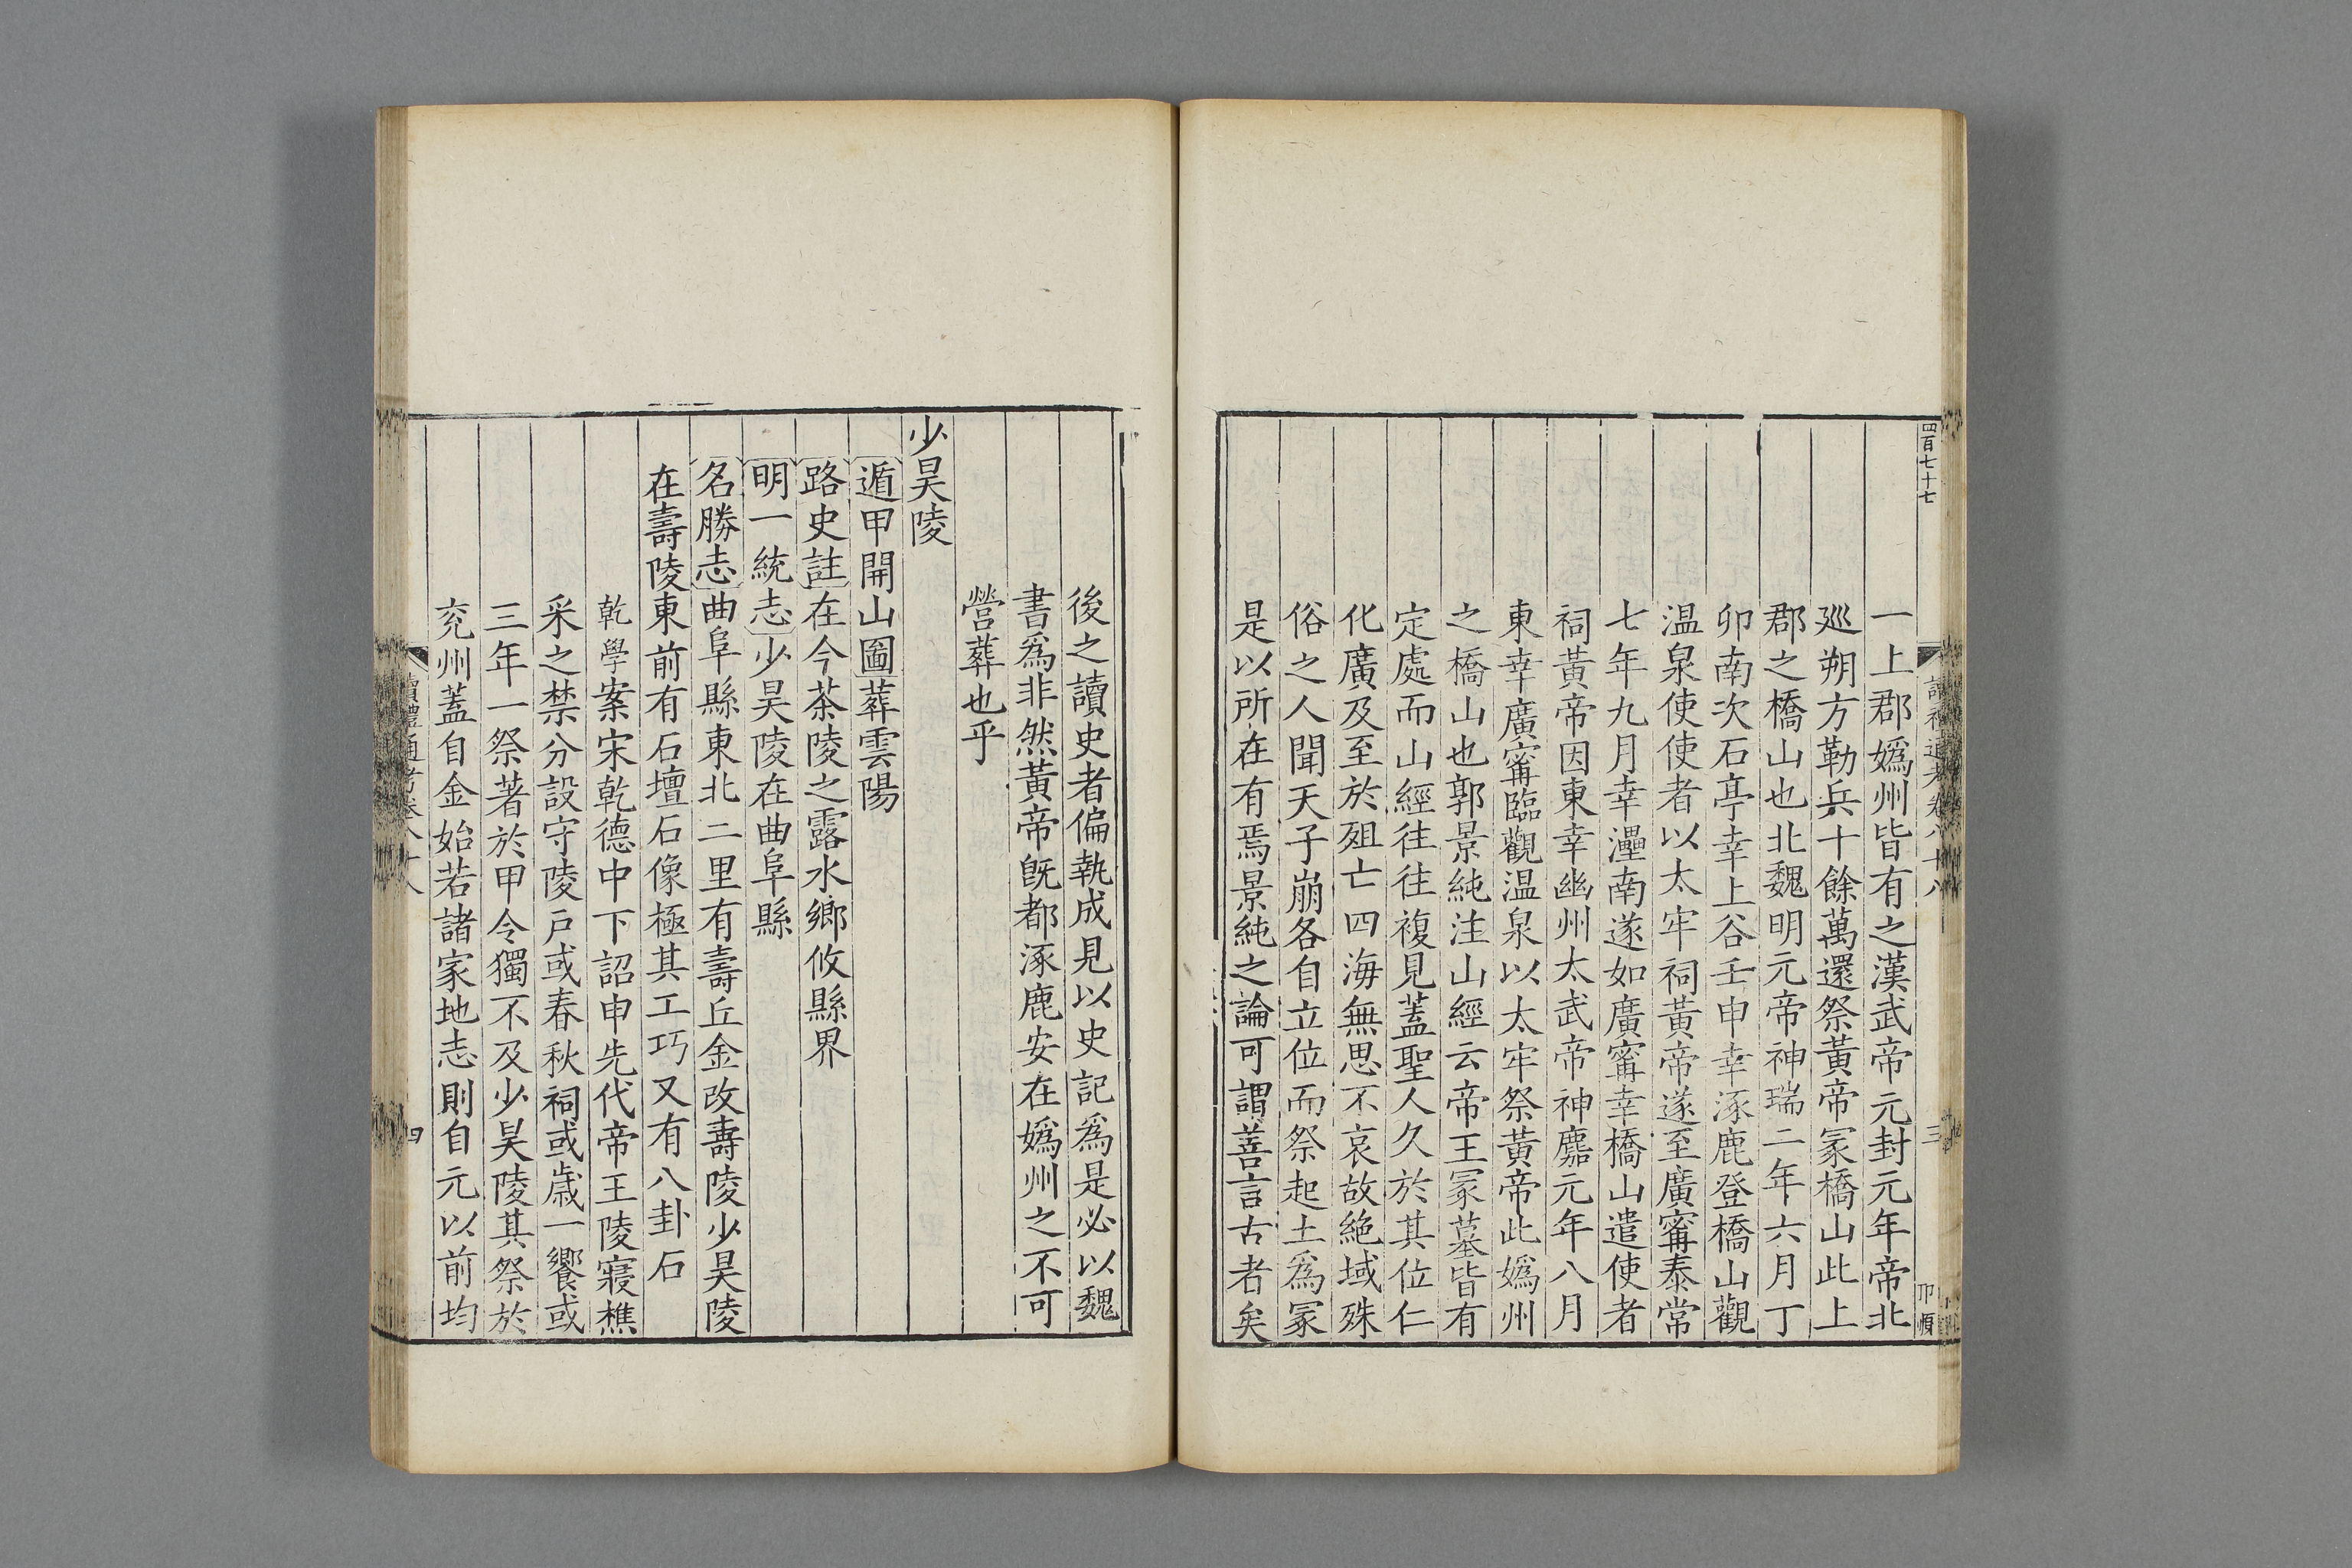 四百七十七
讀禮通考卷八十八
三
一上郡嬀州皆有之漢武帝元封元年帝北
廵朔方勒兵十餘萬還祭黃帝冡橋山此上
郡之橋山也北魏明元帝神瑞二年六月丁
卯南次石亭幸上谷壬申幸涿鹿登橋山觀
温泉使使者以太牢祠黃帝遂至廣甯泰常
七年九月幸㶟南遂如廣甯幸橋山遣使者
祠黃帝因東幸幽州太武帝神䴥元年八月
東幸廣甯臨觀温泉以太牢祭黃帝此嬀州
之橋山也郭景純注山經云帝王冡墓皆有
定處而山經往往複見蓋聖人久於其位仁
化廣及至於殂亡四海無思不哀故絶域殊
俗之人聞天子崩各自立位而祭起土爲冡
是以所在有焉景純之論可謂善言古者矣
後之讀史者偏執成見以史記爲是必以魏
書爲非然黃帝旣都涿鹿安在嬀州之不可
營葬也乎
少昊陵
遁甲開山圖葬雲陽
路史註在今茶陵之露水鄉攸縣界
明一統志少昊陵在曲阜縣
名勝志曲阜縣東北二里有壽丘金改壽陵少昊陵
在壽陵東前有石壇石像極其工巧又有八卦石
乾學案宋乾德中下詔申先代帝王陵寢樵
采之禁分設守陵戶或春秋祠或歲一饗或
三年一祭著於甲令獨不及少昊陵其祭於
兖州蓋自金始若諸家地志則自元以前均
讀禮通考卷八十八
四